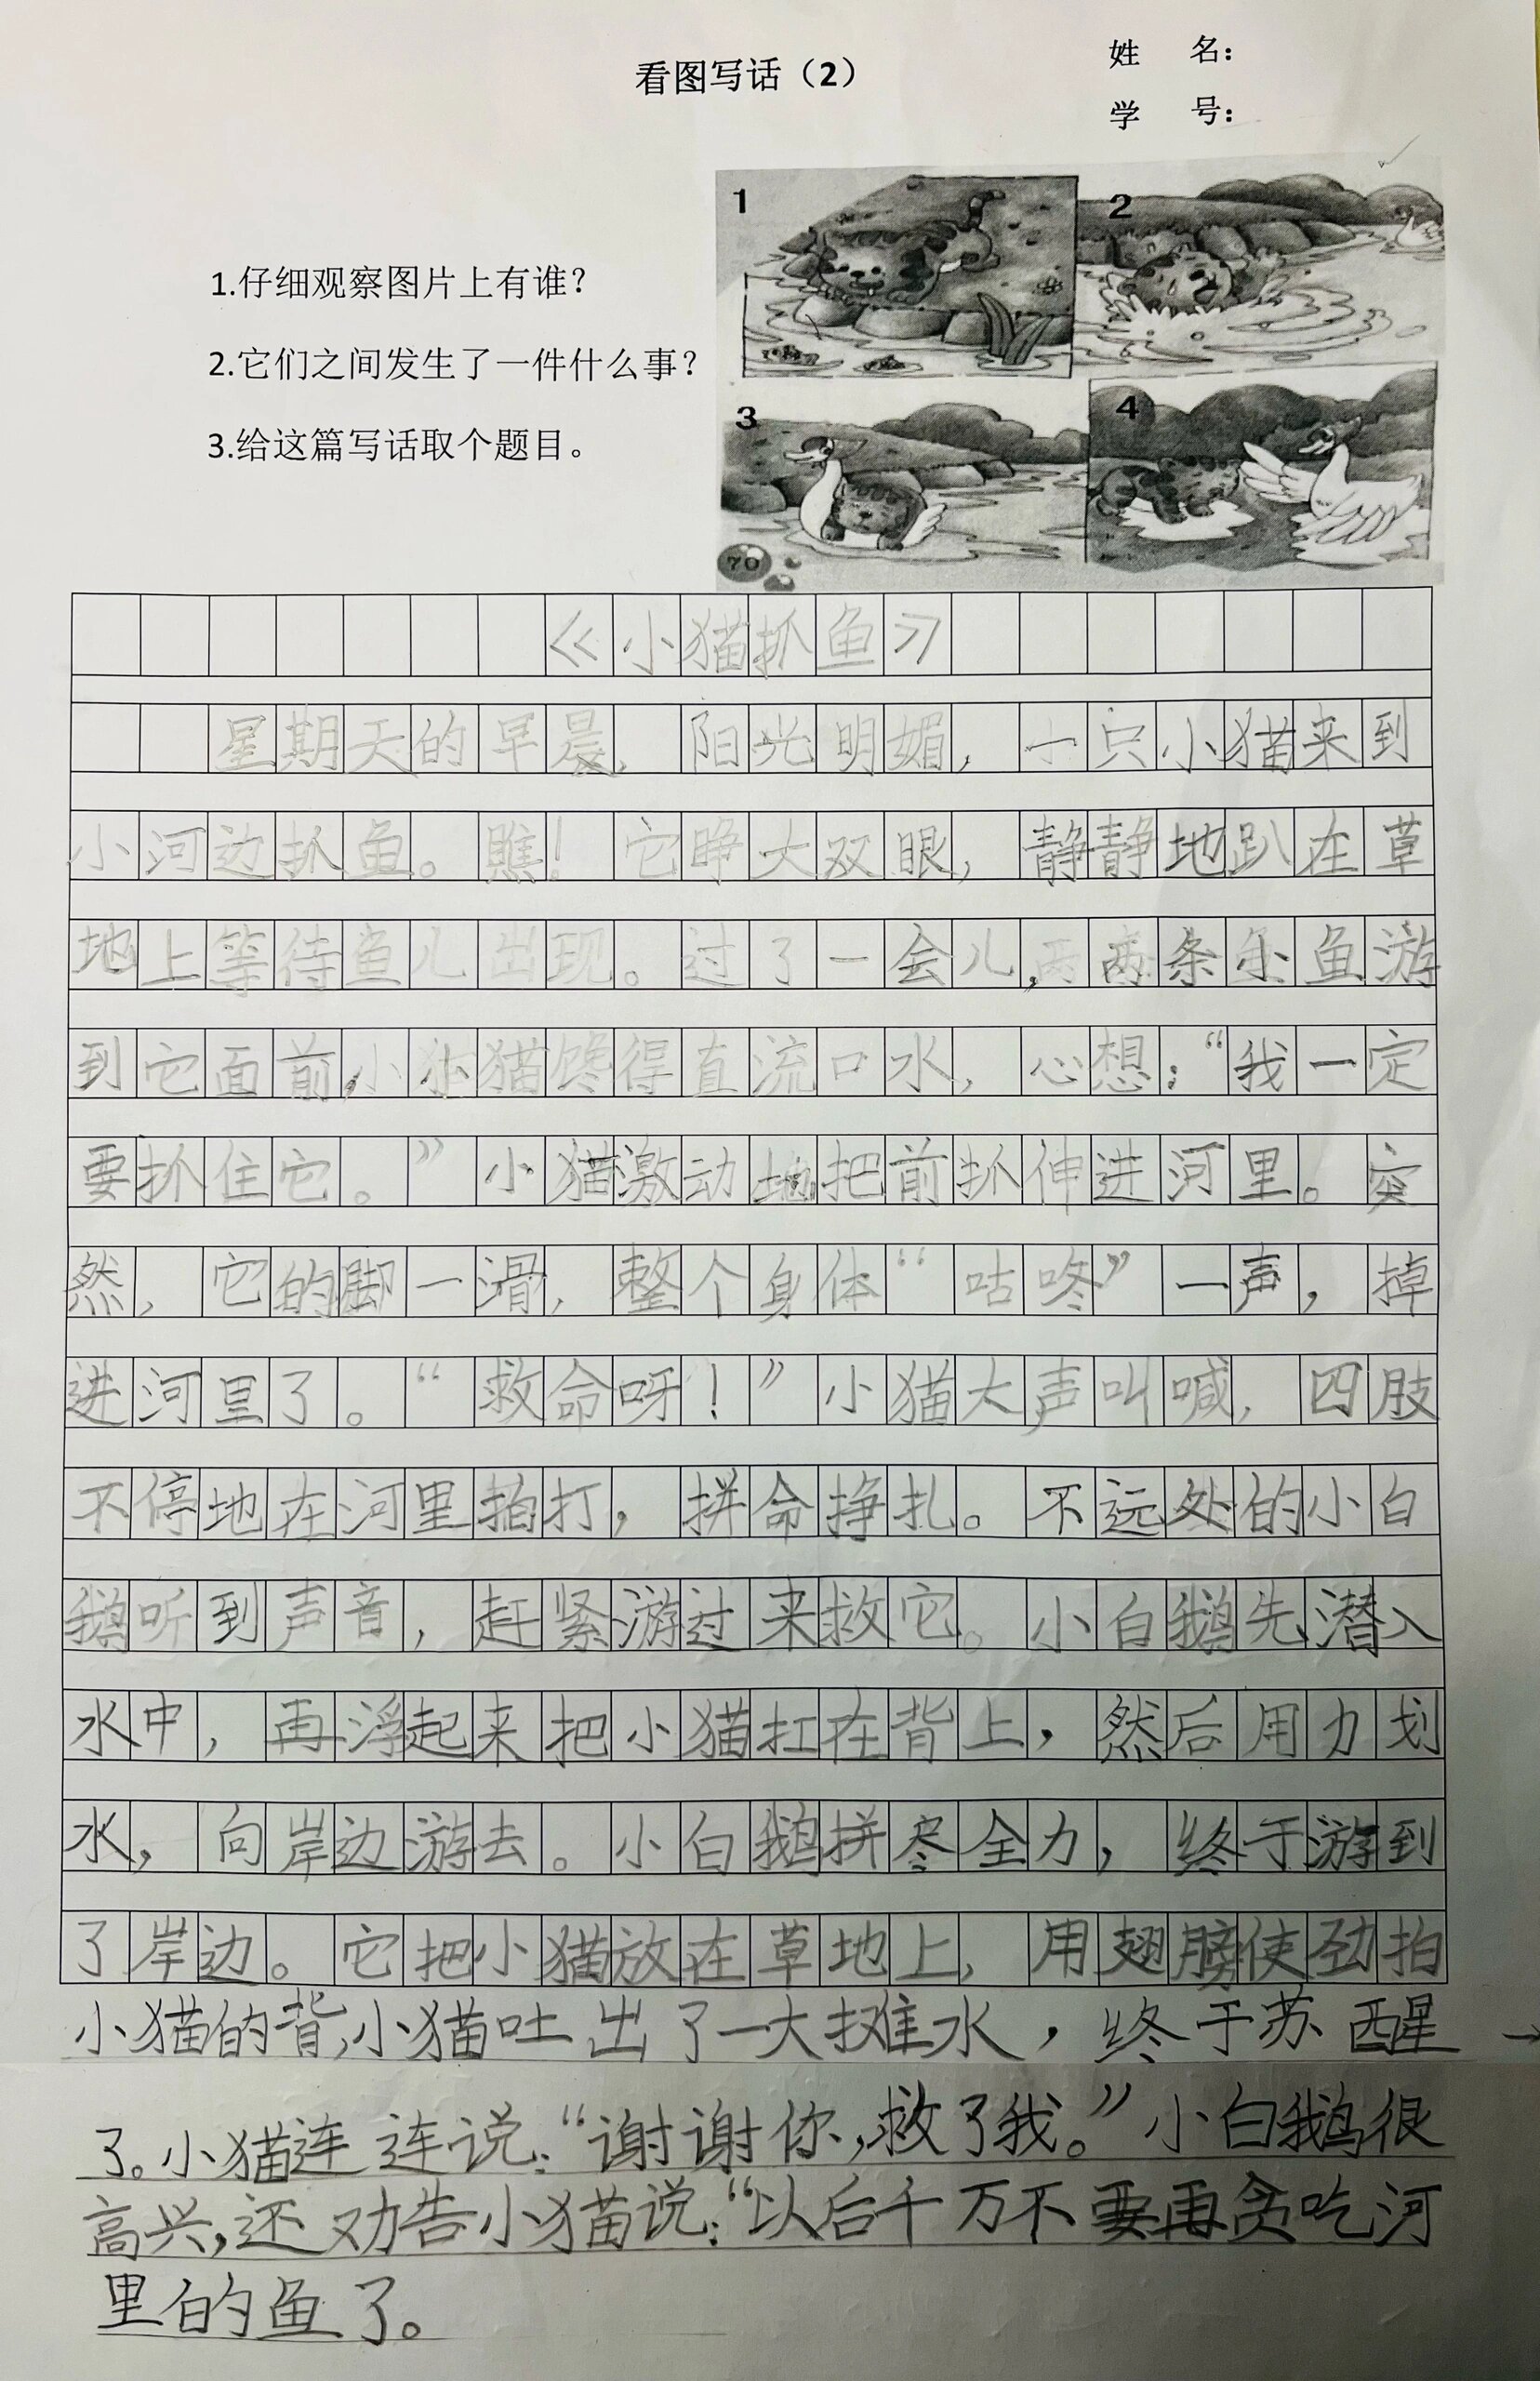 看图写话（2）
姓 名：
学 号：
1.仔细观察图片上有谁？
2.它们之间发生了一件什么事？
3.给这篇写话取个题目。
1
2
3
4
70
《小猫抓鱼》
星期天的早晨，阳光明媚，一只小猫来到
小河边抓鱼。瞧！它睁大双眼，静静地趴在草
地上等待鱼儿出现。过了一会儿，两条小鱼游
到它面前，小猫馋得直流口水，心想：“我一定
要抓住它。”小猫激动地把前抓伸进河里。突
然，它的脚一滑，整个身体“咕咚”一声，掉
进河里了。“救命呀！”小猫大声叫喊，四肢
不停地在河里拍打，拼命挣扎。不远处的小白
鹅听到声音，赶紧游过来救它。小白鹅先潜入
水中，再浮起来把小猫扛在背上，然后用力划
水，向岸边游去。小白鹅拼尽全力，终于游到
了岸边。它把小猫放在草地上，用翅膀使劲拍
小猫的背，小猫吐出了一大摊水，终于苏醒→
了。小猫连连说：“谢谢你，救了我。”小白鹅很
高兴，还劝告小猫说：“以后千万不要再贪吃河
里的鱼了。